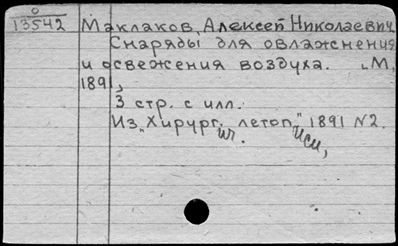 0
13542
Маклаков, Алексей Николаевич
Снаряды для овлажнения
и освежения воздуха. М,
1891,
3 стр. с илл.
Из „Хирург. летоп." 1891 N2.